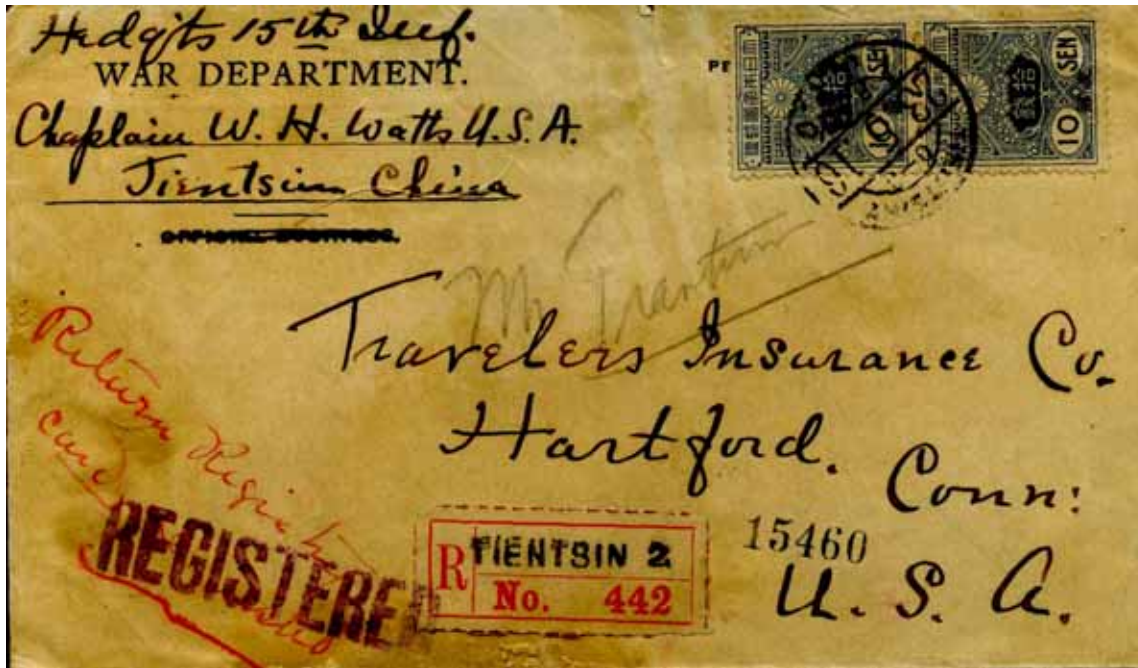 Hedqts 15th Inf.
WAR DEPARTMENT.
Chaplain W. H. Watts U.S.A.
Tientsin China
PE
10 SEN
拾銭
10 SEN
拾銭
大日本帝國郵便
Mr
Travelers Insurance Co.
Hartford.
Conn:
U. S. A.
15460
Return Registry
card
REGISTERE
R TIENTSIN 2
No. 442